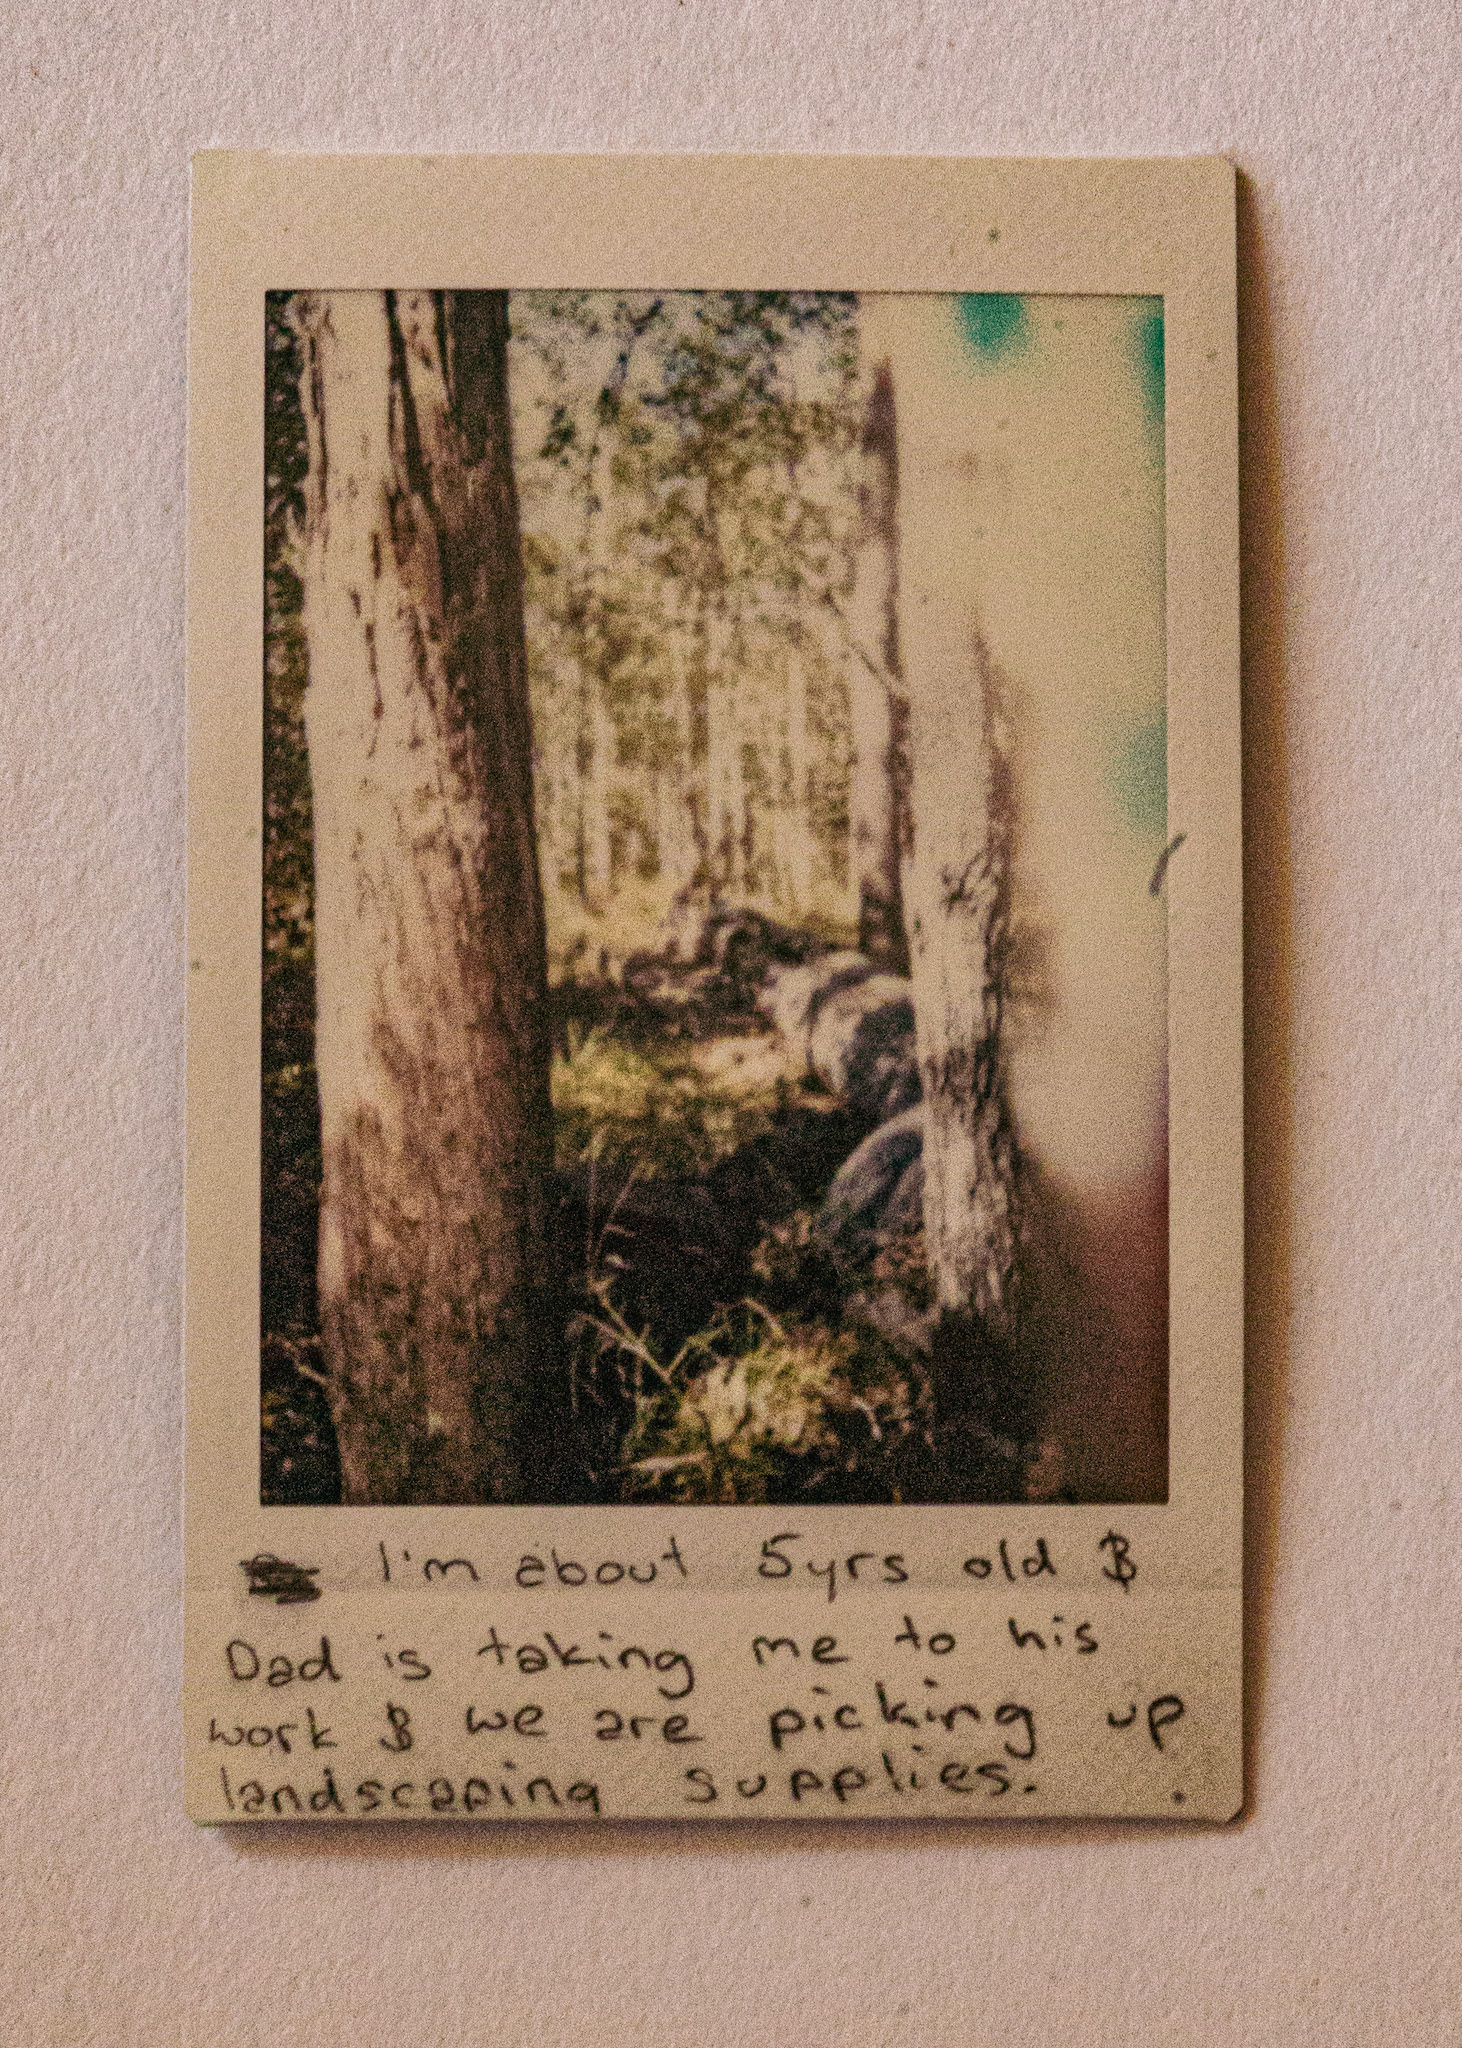 I'm about 5yrs old &
Dad is taking me to his
work & we are picking up
landscaping supplies.